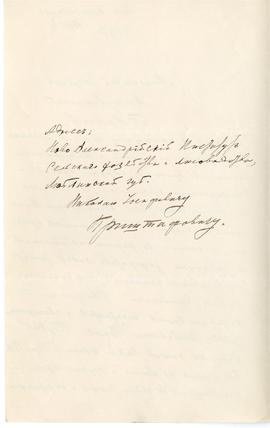 Адрес:
Ново Александрійскій Институтъ
Сельскаго хозяйства и лесоводства,
Люблинской губ.
Николаю Іосифовичу
Криштафовичу.